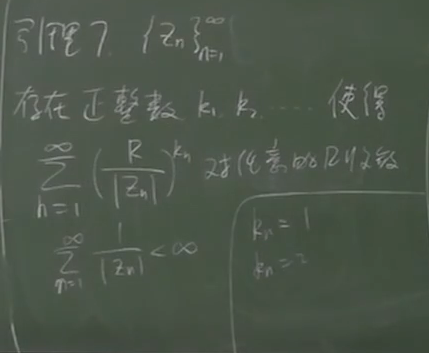 引理7. {Zn}_{n=1}^{∞}
存在正整数 k₁, k₂, …… 使得
\sum_{n=1}^{∞} (R/|Zn|)^{kn} 对任意的R收敛
\sum_{n=1}^{∞} 1/|Zn| < ∞
kn = 1
kn = 2